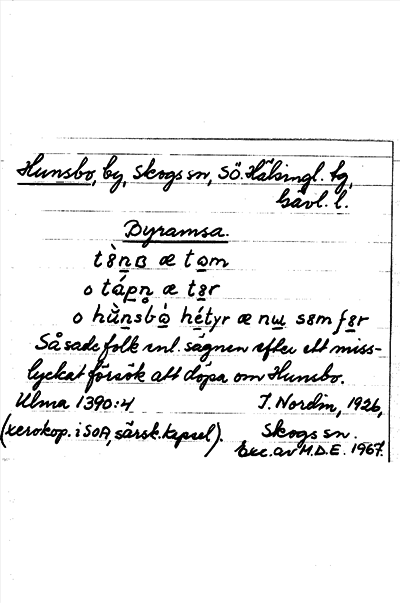 Hunsbo, by, Skogs sn, Sö. Hälsingl. tg,
Gävl. l.
Byramsa.
tȣ̀nʙ æ tom
o tápn̥ æ tȣr
o hùnsbò hétyr æ nɯ sȣm fȣr
Så sade folk enl. sägnen efter ett miss-
lyckat försök att döpa om Hunsbo.
Ulma 1390:4 J. Nordin, 1926,
(xerokop. i SOA, särsk. kapsel). Skogs sn.
Exc. av M.D.E. 1967.